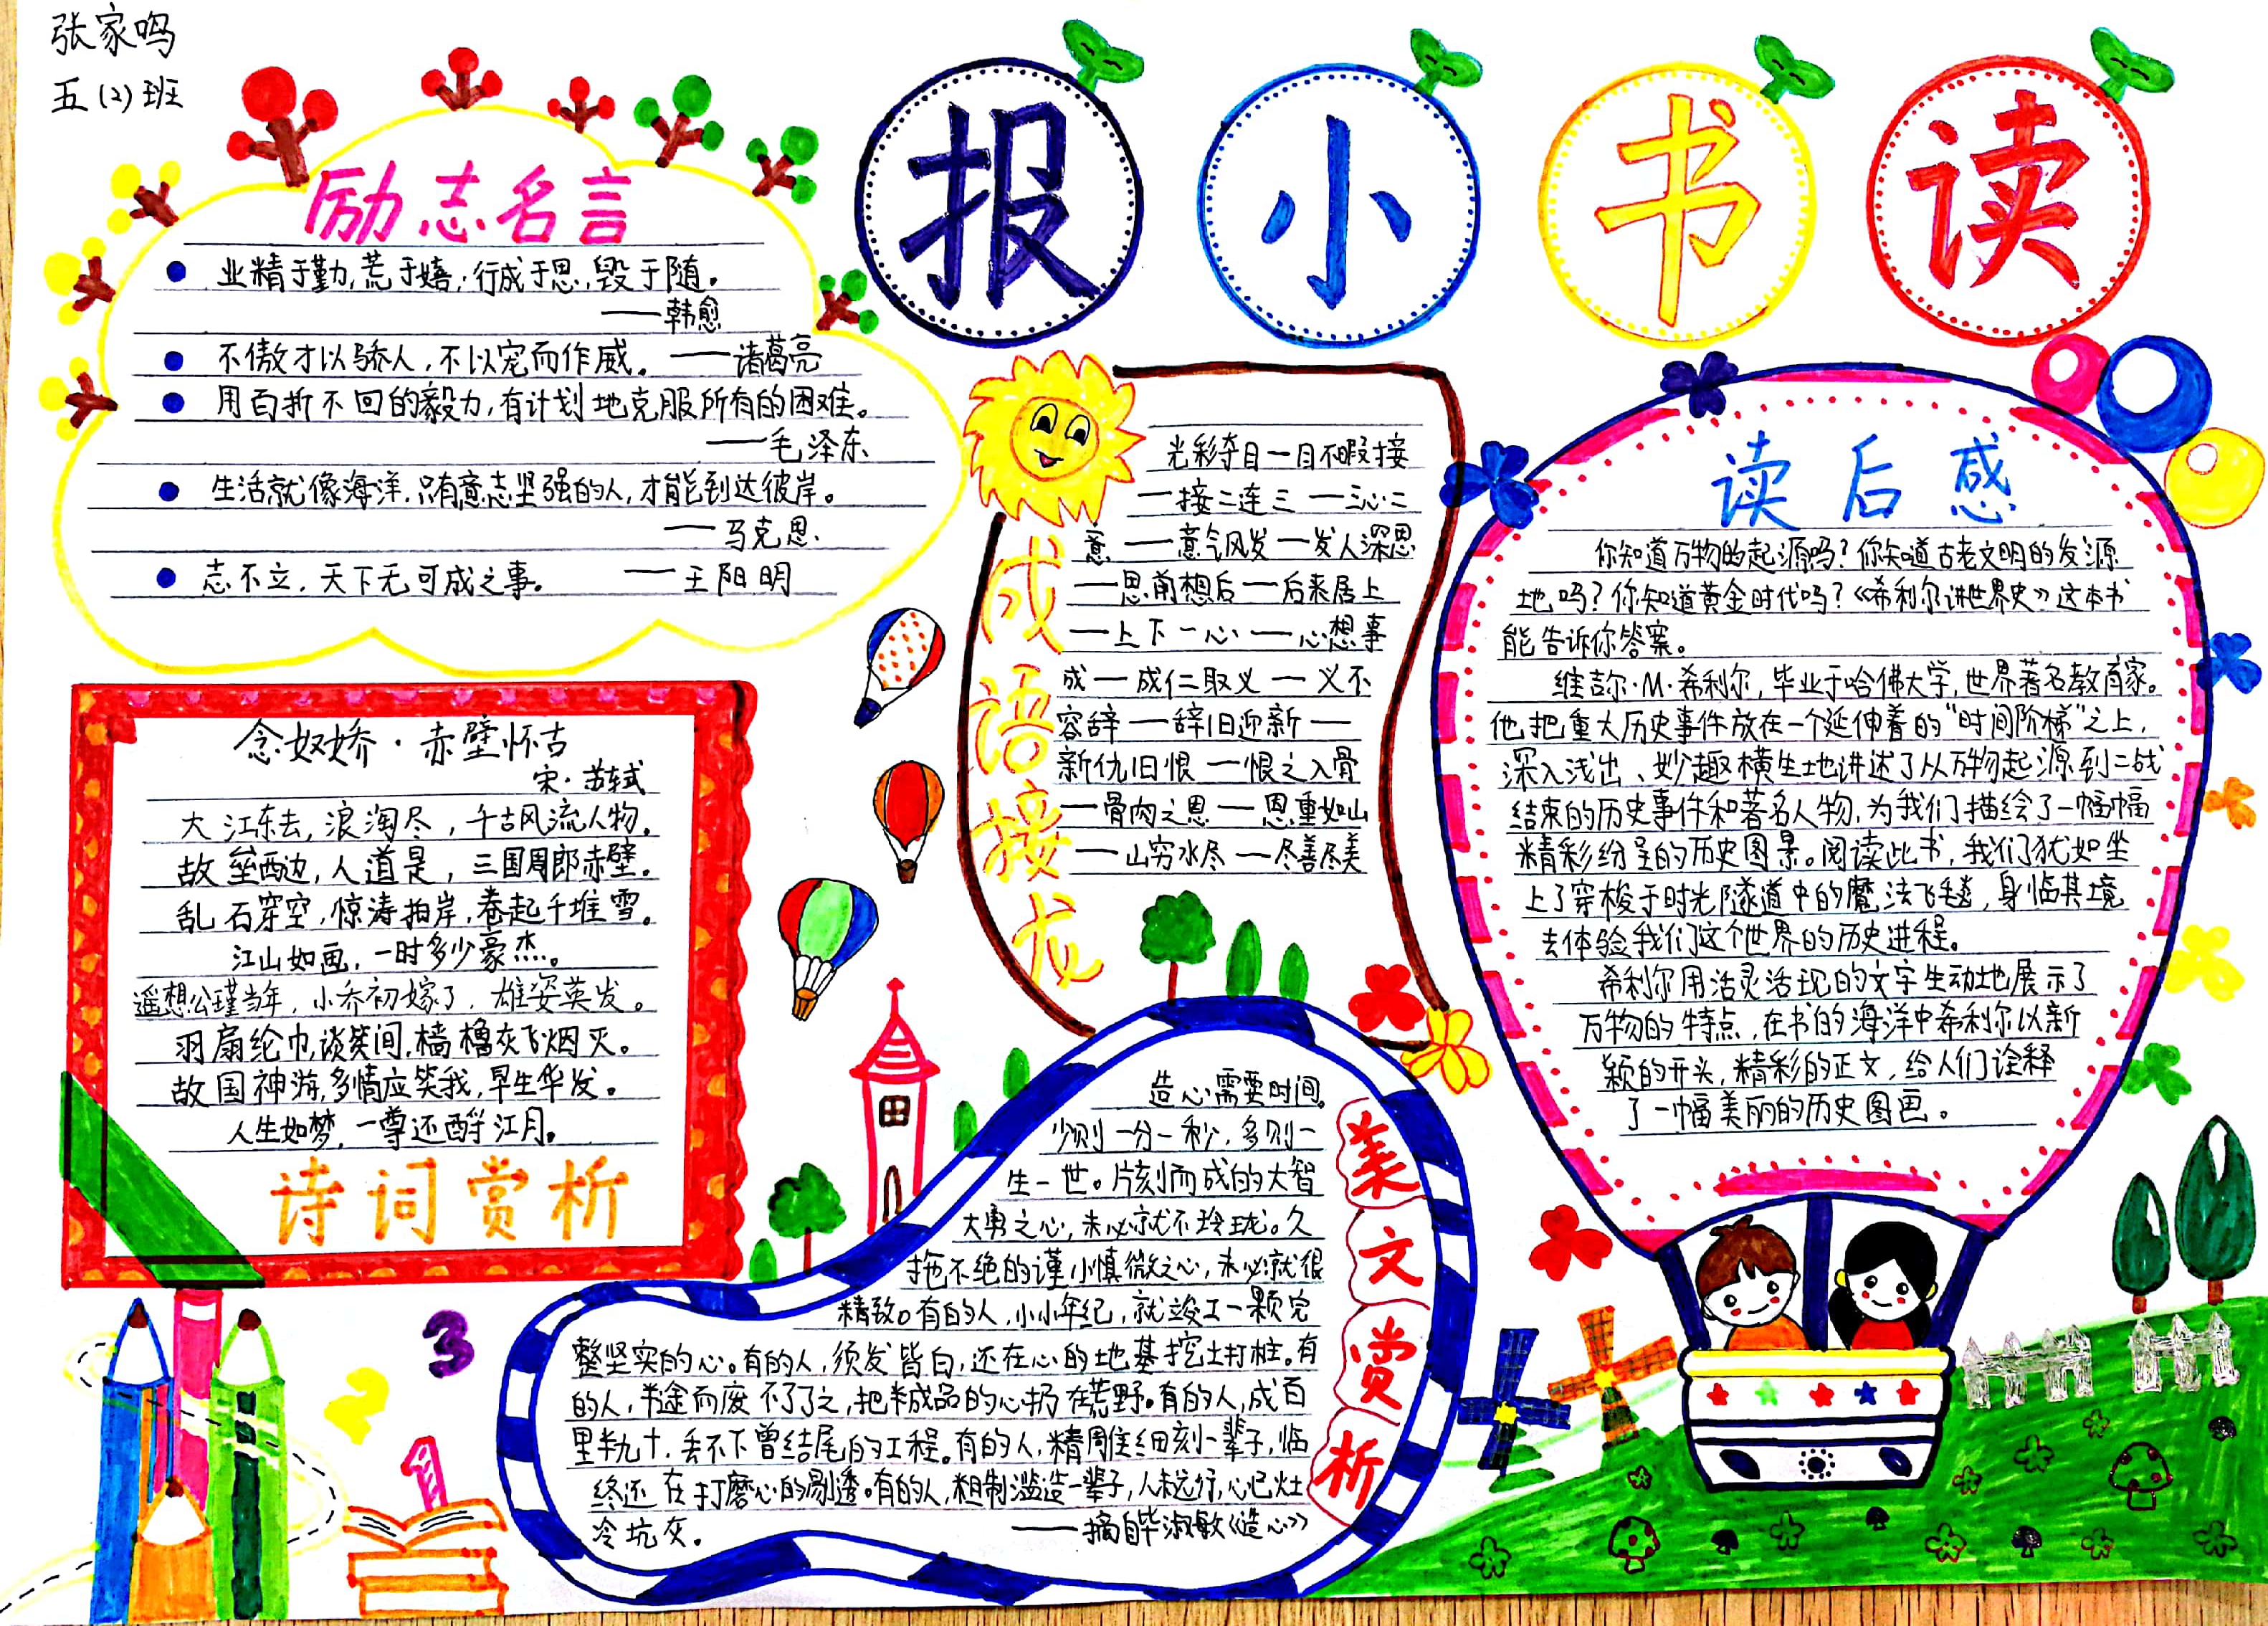 张家鸣
五(2)班
读书小报
励志名言
业精于勤,荒于嬉;行成于思,毁于随。
——韩愈
不傲才以骄人,不以宠而作威。——诸葛亮
用百折不回的毅力,有计划地克服所有的困难。
——毛泽东
生活就像海洋,只有意志坚强的人,才能到达彼岸。
——马克思
志不立,天下无可成之事。——王阳明
念奴娇·赤壁怀古
宋·苏轼
大江东去,浪淘尽,千古风流人物。
故垒西边,人道是,三国周郎赤壁。
乱石穿空,惊涛拍岸,卷起千堆雪。
江山如画,一时多少豪杰。
遥想公瑾当年,小乔初嫁了,雄姿英发。
羽扇纶巾,谈笑间,樯橹灰飞烟灭。
故国神游,多情应笑我,早生华发。
人生如梦,一尊还酹江月。
诗词赏析
成语接龙
光彩夺目—目不暇接
—接二连三——三心二
意——意气风发—发人深思
—思前想后—后来居上
—上下一心——心想事
成—成仁取义—义不
容辞—辞旧迎新—
新仇旧恨—恨之入骨
—骨肉之恩—恩重如山
—山穷水尽—尽善尽美
读后感
你知道万物的起源吗?你知道古老文明的发源
地吗?你知道黄金时代吗?《希利尔讲世界史》这本书
能告诉你答案。
维吉尔·M·希利尔,毕业于哈佛大学,世界著名教育家。
他把重大历史事件放在一个延伸着的“时间阶梯”之上,
深入浅出、妙趣横生地讲述了从万物起源到二战
结束的历史事件和著名人物,为我们描绘了一幅幅
精彩纷呈的历史图景。阅读此书,我们犹如坐
上了穿梭于时光隧道中的魔法飞毯,身临其境
去体验我们这个世界的历史进程。
希利尔用活灵活现的文字生动地展示了
万物的特点,在书的海洋中希利尔以新
颖的开头,精彩的正文,给人们诠释
了一幅美丽的历史图画。
美文赏析
造心需要时间。
少则一分一秒,多则一
生一世。片刻而成的大智
大勇之心,未必就不玲珑。久
拖不绝的谨小慎微之心,未必就很
精致。有的人,小小年纪,就竣工一颗完
整坚实的心。有的人,须发皆白,还在心的地基挖土打桩。有
的人,半途而废不了了之,把半成品的心扔在荒野。有的人,成百
里半九十,丢不下曾结尾的工程。有的人,精雕细刻一辈子,临
终还在打磨心的剔透。有的人,粗制滥造一辈子,人未远行,心已灶
冷坑灰。——摘自毕淑敏《造心》
3
2
1